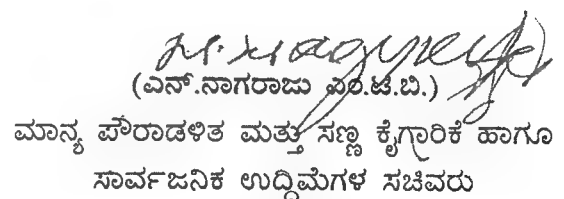 (ಎನ್.ನಾಗರಾಜು ಎಂ.ಟಿ.ಬಿ.)
ಮಾನ್ಯ ಪೌರಾಡಳಿತ ಮತ್ತು ಸಣ್ಣ ಕೈಗಾರಿಕೆ ಹಾಗೂ
ಸಾರ್ವಜನಿಕ ಉದ್ದಿಮೆಗಳ ಸಚಿವರು